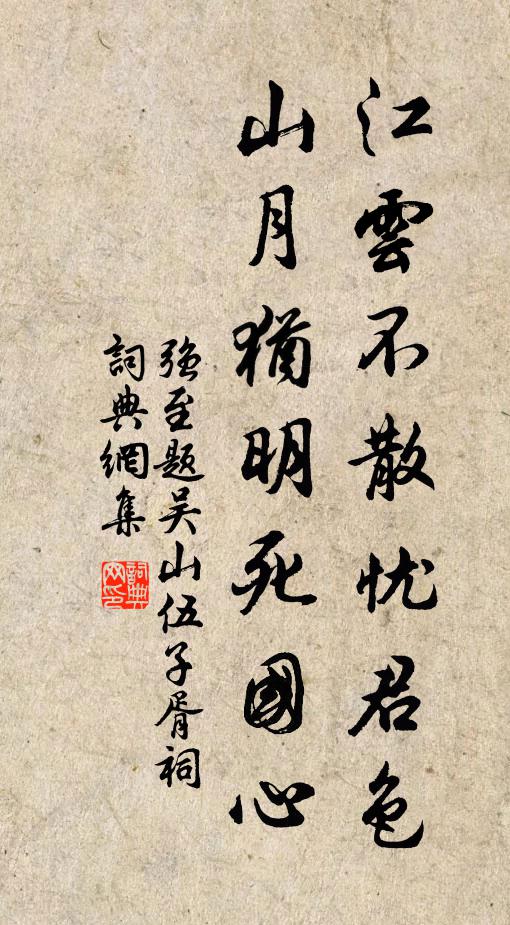 江雲不散忧君色
山月猶明死國心
強至題吴山伍子胥祠
詞典網集
詞典网印